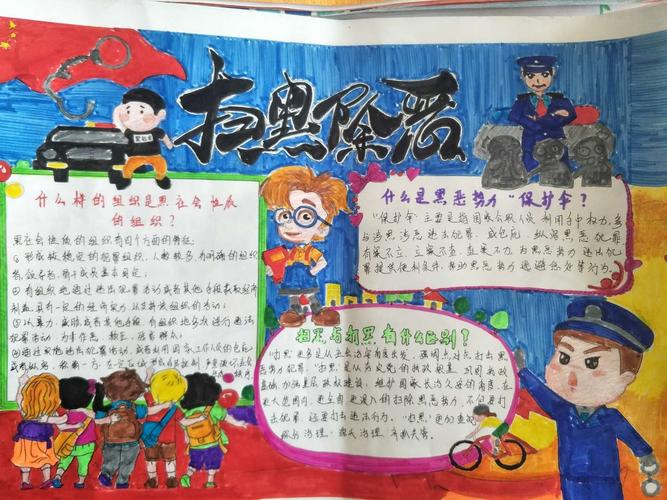 扫黑除恶
什么样的组织是黑社会性质
的组织?
黑社会性质的组织有四个方面的特征:
形成较稳定的犯罪组织,人数较多,有明确的组织
者、领导者,骨干成员基本固定;
有组织地通过违法犯罪活动或者其他手段获取经济
利益,具有一定的经济实力,以支持该组织的活动;
以暴力、威胁或者其他手段,有组织地多次进行违法
犯罪活动,为非作恶,欺压、残害群众;
通过实施违法犯罪活动,或者利用国家工作人员的包庇
或者纵容,称霸一方,在一定
什么是黑恶势力“保护伞”?
“保护伞”主要是指国家公职人员利用手中权力,参
与涉黑涉恶违法犯罪,或包庇、纵容黑恶犯罪
有案不立、立案不查、查案不力,为黑恶势力违法犯
罪提供便利条件,帮助黑恶势力逃避惩处等行为。
扫黑与打黑有什么区别?
“扫黑”更多是从社会治
犯罪。“扫黑”是从夯实党的执政根基、巩固执政
基础、加强基层政权建设、维护国家长治久安的角度,在
更大范围内,更全面更深入的扫除黑恶势力,不仅要打
击犯罪,还要打击违法行为。“扫黑”更加重视
综合治理、源头治理、齐抓共管。